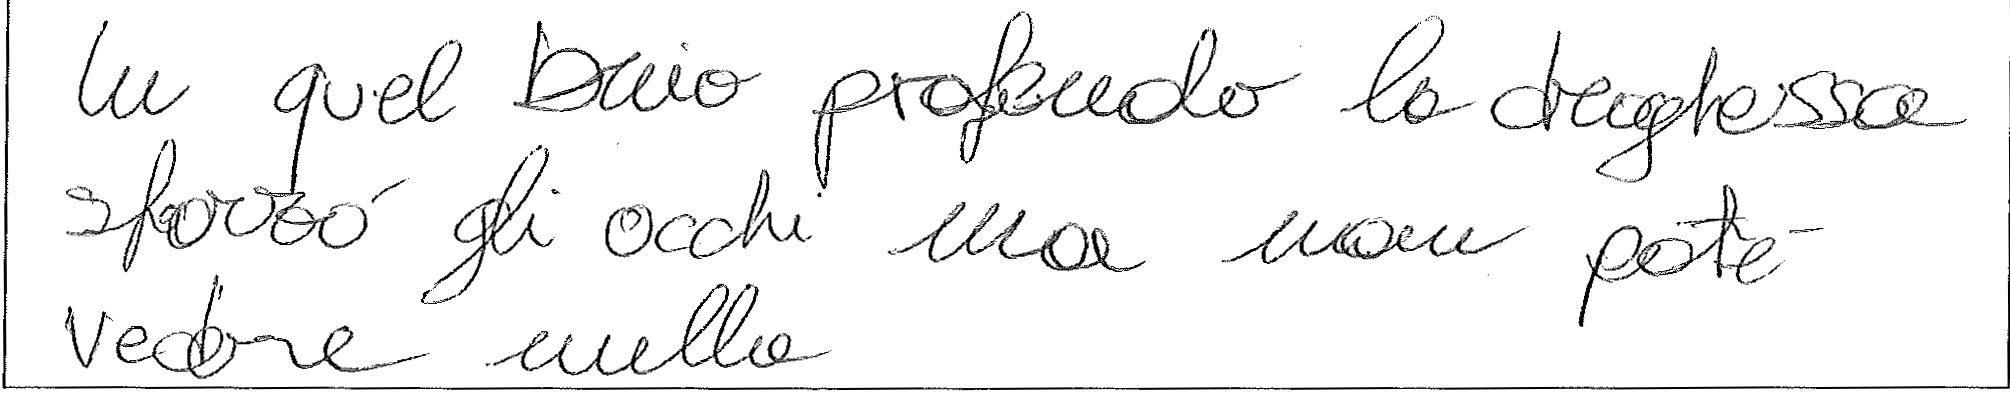 In quel buio profondo la draghessa
sforzò gli occhi ma non poté
vedere nulla